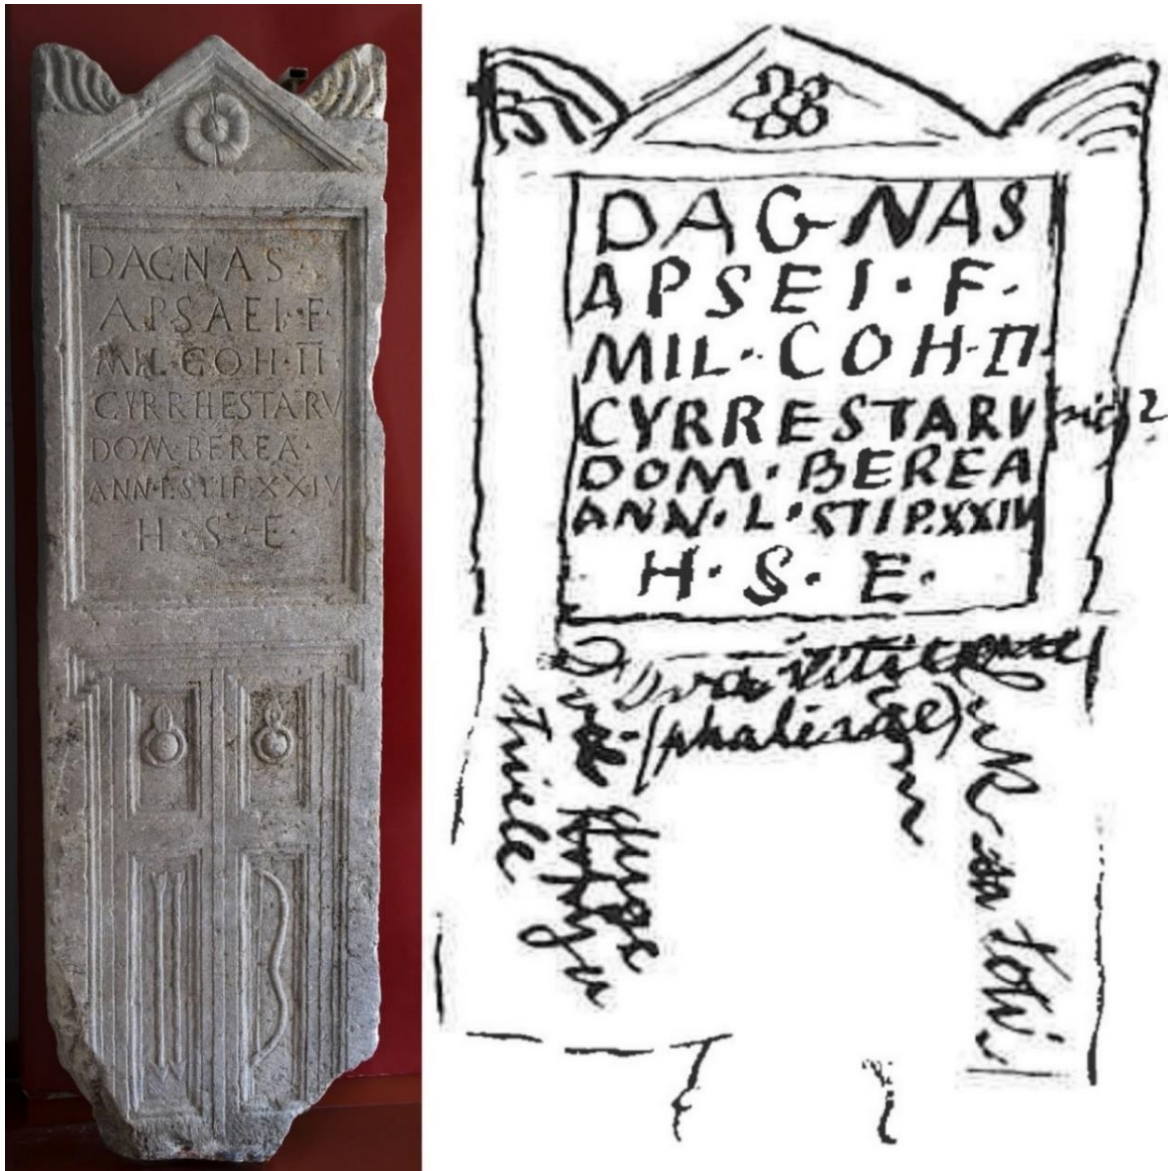 DAGNAS
APSAEI·F·
MIL·COH·II·
CYRRHESTARV
DOM·BEREA·
ANN·L·STIP·XXIV
H·S·E·
DAGNAS
APSEI·F·
MIL·COH·II·
CYRRESTARV
DOM·BEREA
ANN·L·STIP.XXIV
H·S·E·